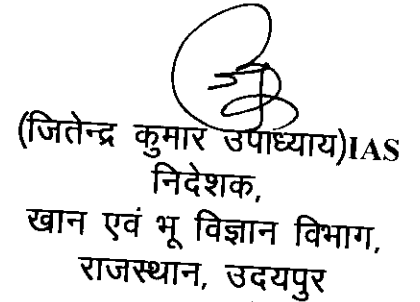 (जितेन्द्र कुमार उपाध्याय)IAS
निदेशक,
खान एवं भू विज्ञान विभाग,
राजस्थान, उदयपुर